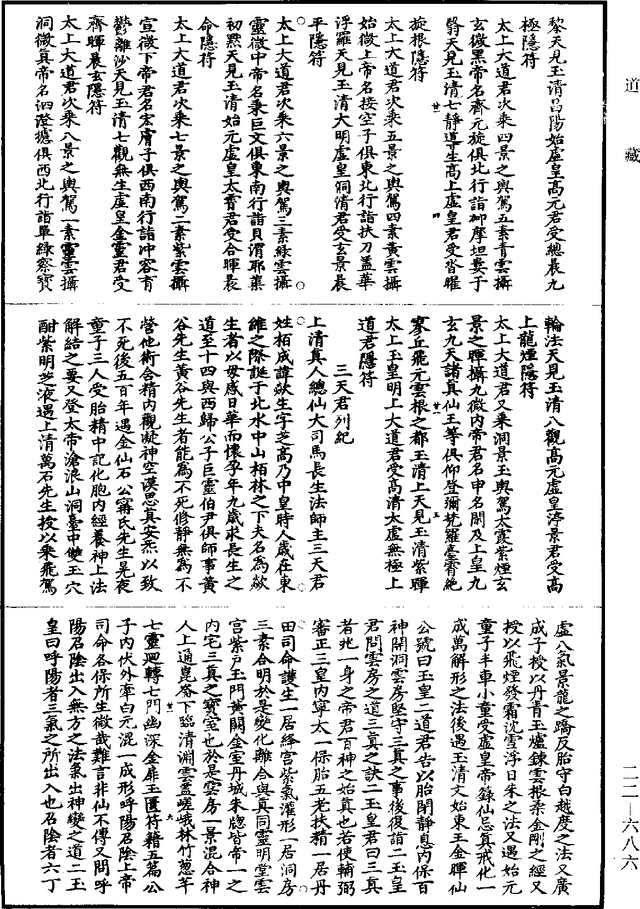 道藏
黎天見玉清昌陽始虛皇高元君受總晨九
極隱符
太上大道君次乘四景之輿駕五素青雲攝
玄微黑帝名齊元旋俱北行詣柳摩坦婁于
翳天見玉清七靜導生高上虛皇君受沓曜
旋根隱符
太上大道君次乘五景之輿駕四素黃雲攝
始微上帝名接空子俱東北行詣扶刀蓋華
浮羅天見玉清大明虛皇洞清君受玄景晨
平隱符
太上大道君次乘六景之輿駕三素綠雲攝
靈微中帝名乘巨文俱東南行詣貝渭耶藁
初默天見玉清始元虛皇太霄君受合暉晨
命隱符
太上大道君次乘七景之輿駕二素紫雲攝
宣微下帝君名宏膚子俱西南行詣沖容育
鬱離沙天見玉清七觀無生虛皇金靈君受
齊暉晨玄隱符
太上大道君次乘八景之輿駕一素靈雲攝
洞微真帝名泗澄擿俱西北行詣單綠察寶
輪法天見玉清八觀高元虛皇淳景君受高
上龍煙隱符
太上大道君又乘洞景玉輿駕太霞紫煙玄
景之暉攝九微內帝君名申名閒及上皇九
玄九天諸真仙王等俱仰登彌梵羅臺霄絕
寥丘飛元雲根之都玉清上天見玉清紫暉
太上玉皇明上大道君受高清太虛無極上
道君隱符
三天君列紀
上清真人總仙大司馬長生法師主三天君
姓栢成諱欻生字芝高乃中皇時人歲在東
維之際誕于北水中山栢林之下夫名為欻
生者以母感日華而懷孕年九歲求長生之
道至十四與西歸公子巨靈伯尹俱師事黃
谷先生黃谷先生者能為不死修靜無為不
營他術含精內觀凝神空漠思真安炁以致
不死後五百年遇金仙石公甯氏先生晃夜
童子三人受胎精中記化胞內經養神上法
解結之要又登太帝滄浪山洞臺中雙玉穴
酣紫明芝液遇上清萬石先生授以乘飛駕
虛八氣景龍之蹻反胎守白越度之法又廣
成子授以丹青玉爐鍊雲根柔金剛之經又
授以飛煙發霜沈雪浮日朱之法又遇始元
童子丰車小童受虛皇帝籙仙忌真戒化一
成萬解形之法後遇玉清文始東王金暉仙
公號曰玉皇二道君告以胎閉靜息內保百
神開洞雲房堅守三真之事後復詣二玉皇
君問雲房之道三真之訣二玉皇君曰三真
者兆一身之帝君百神之始真也若使輔弼
審正三皇內寧太一保胎五老扶精一居丹
田司命護生一居絳宮紫氣灌形一居洞房
三素合明於是變化離合與真同靈明堂雲
宮紫戶玉門黃闕金室丹城朱牕皆帝一之
內宅三真之寶室也於是雲房一景混合神
人上通崑崙下臨清淵雲蓋嵯峨林竹葱芊
七靈迴轉七門幽深金扉玉匱符籍五篇公
子內伏外牽白元混一成形呼陽召陰上帝
司命各保所生微哉難言非仙不傳又問呼
陽召陰出入無方之法氣出神變之道二玉
皇曰呼陽者三氣之所出入也召陰者六丁
二二—六八六